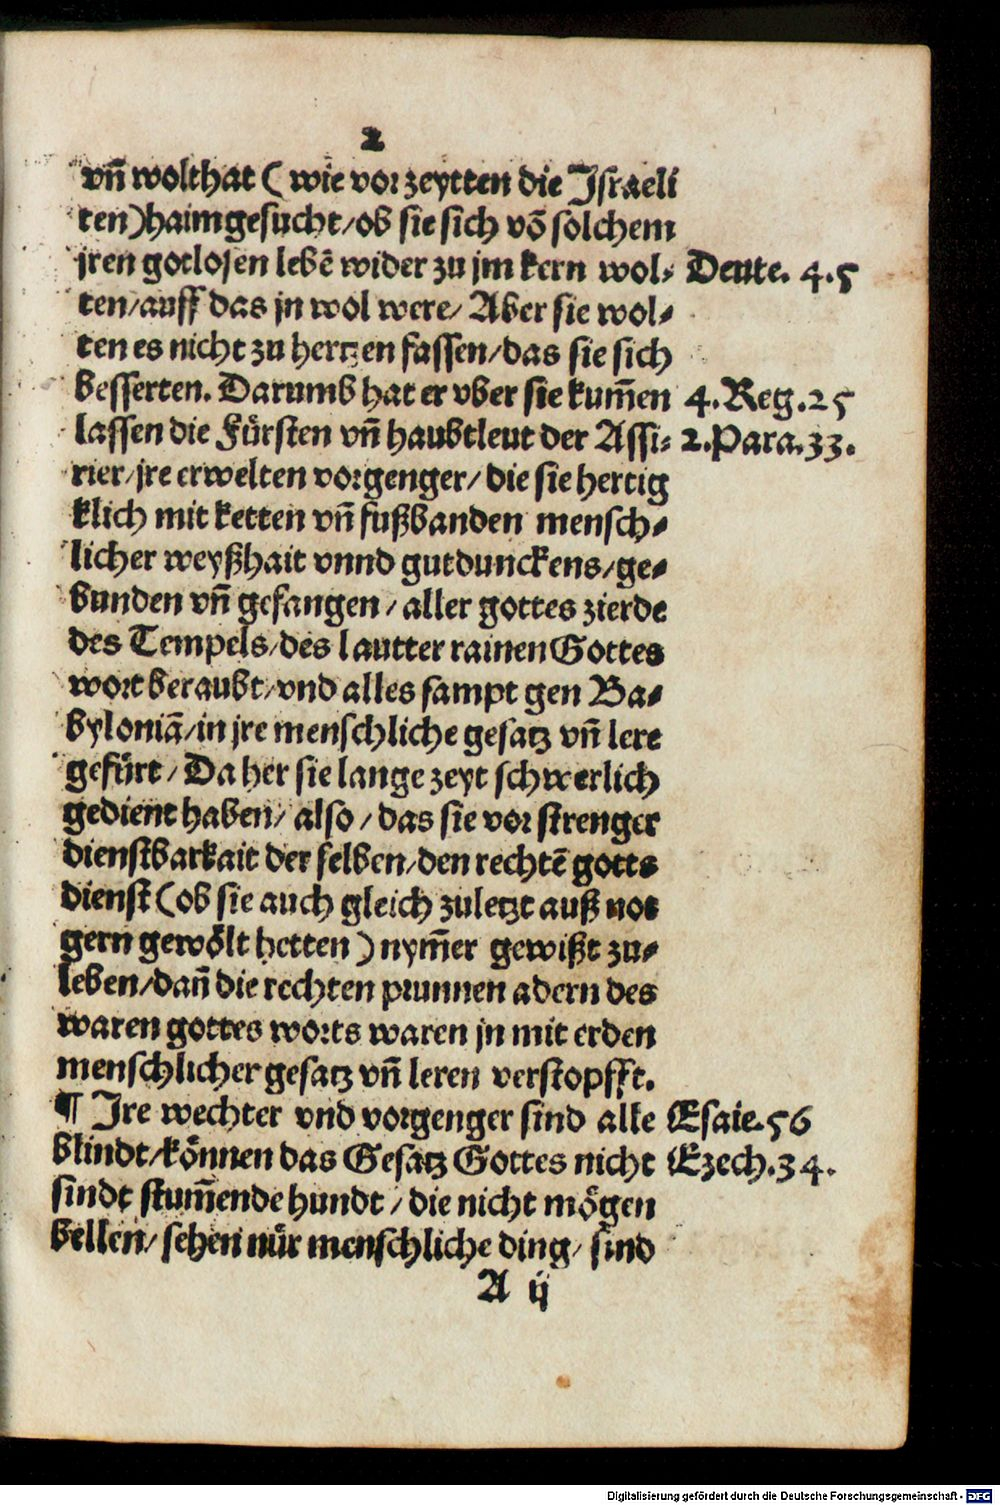 2
vñ wolthat ( wie vor zeytten die Israeli
ten)haimgesucht/ob sie sich võ solchem
jren gotlosen lebẽ wider zu jm kern wol⸗ Deute. 4.5
ten/auff das jn wol were/ Aber sie wol⸗
ten es nicht zu hertzen fassen/das sie sich
besserten. Darumb hat er vber sie kum̃en 4.Reg.25
lassen die Fürsten vñ haubtleut der Assi⸗ 2.Para.33.
rier/jre erwelten vorgenger/die sie hertig
klich mit ketten vñ fußbanden mensch⸗
licher weyßhait vnnd gutdunckens/ge⸗
bunden vñ gefangen/aller gottes zierde
des Tempels/des lautter rainen Gottes
wort beraubt/vnd alles sampt gen Ba⸗
byloniã/in jre menschliche gesatz vñ lere
gefürt/Da her sie lange zeyt schwerlich
gedient haben/also/das sie vor strenger
dienstbarkait der selben/den rechtẽ gotts
dienst (ob sie auch gleich zuletzt auß not
gern gewölt hetten ) nym̃er gewißt zu⸗
leben/dañ die rechten prunnen adern des
waren gottes worts waren jn mit erden
menschlicher gesatz vñ leren verstopfft.
¶ Ire wechter vnd vorgenger sind alle Esaie.56
blindt/können das Gesatz Gottes nicht Ezech.34.
sindt stum̃ende hundt/die nicht mögen
bellen/sehen nür menschliche ding/sind
A ij
Digitalisierung gefördert durch die Deutsche Forschungsgemeinschaft - DFG